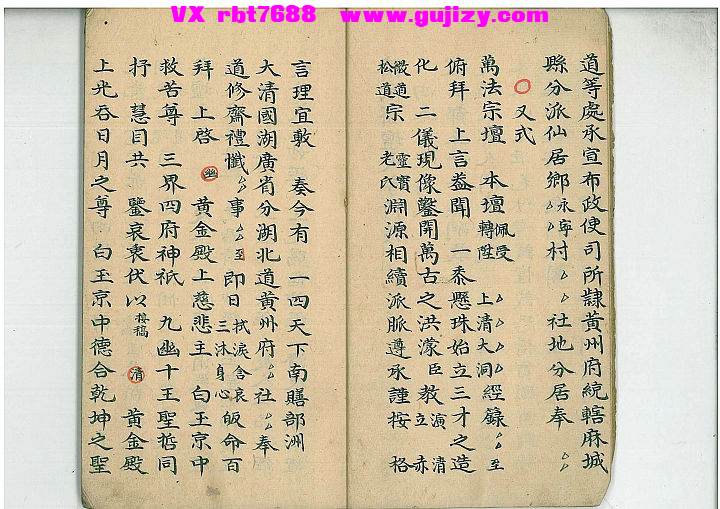 VX rbt7688 www.gujizy.com
道等處承宣布政使司所隸黃州府統轄麻城
縣分派仙居鄉永寧村 社地分居奉
又式
萬法宗壇 本壇佩受轉陞 上清大洞經籙 至
俯拜 上言益聞一黍懸珠始立三才之造
化 二儀現像鑿開萬古之洪濛臣教演清立赤
微道松道宗靈寶老氏淵源相續派脈遵承謹按 格
言理宜敷 奏今有 一四天下南贍部洲
大清國湖廣省分湖北道黃州府 社 奉
道修齋禮懺 事 至即日拭淚含哀三沐身心皈命百
拜 上啓 幽 黃金殿上慈悲主 白玉京中
救苦尊 三界四府神祇 九幽十王聖哲同
抒 慧目共 鑒哀衷伏以接稿 清 黃金殿
上光吞日月之尊 白玉京中德合乾坤之聖